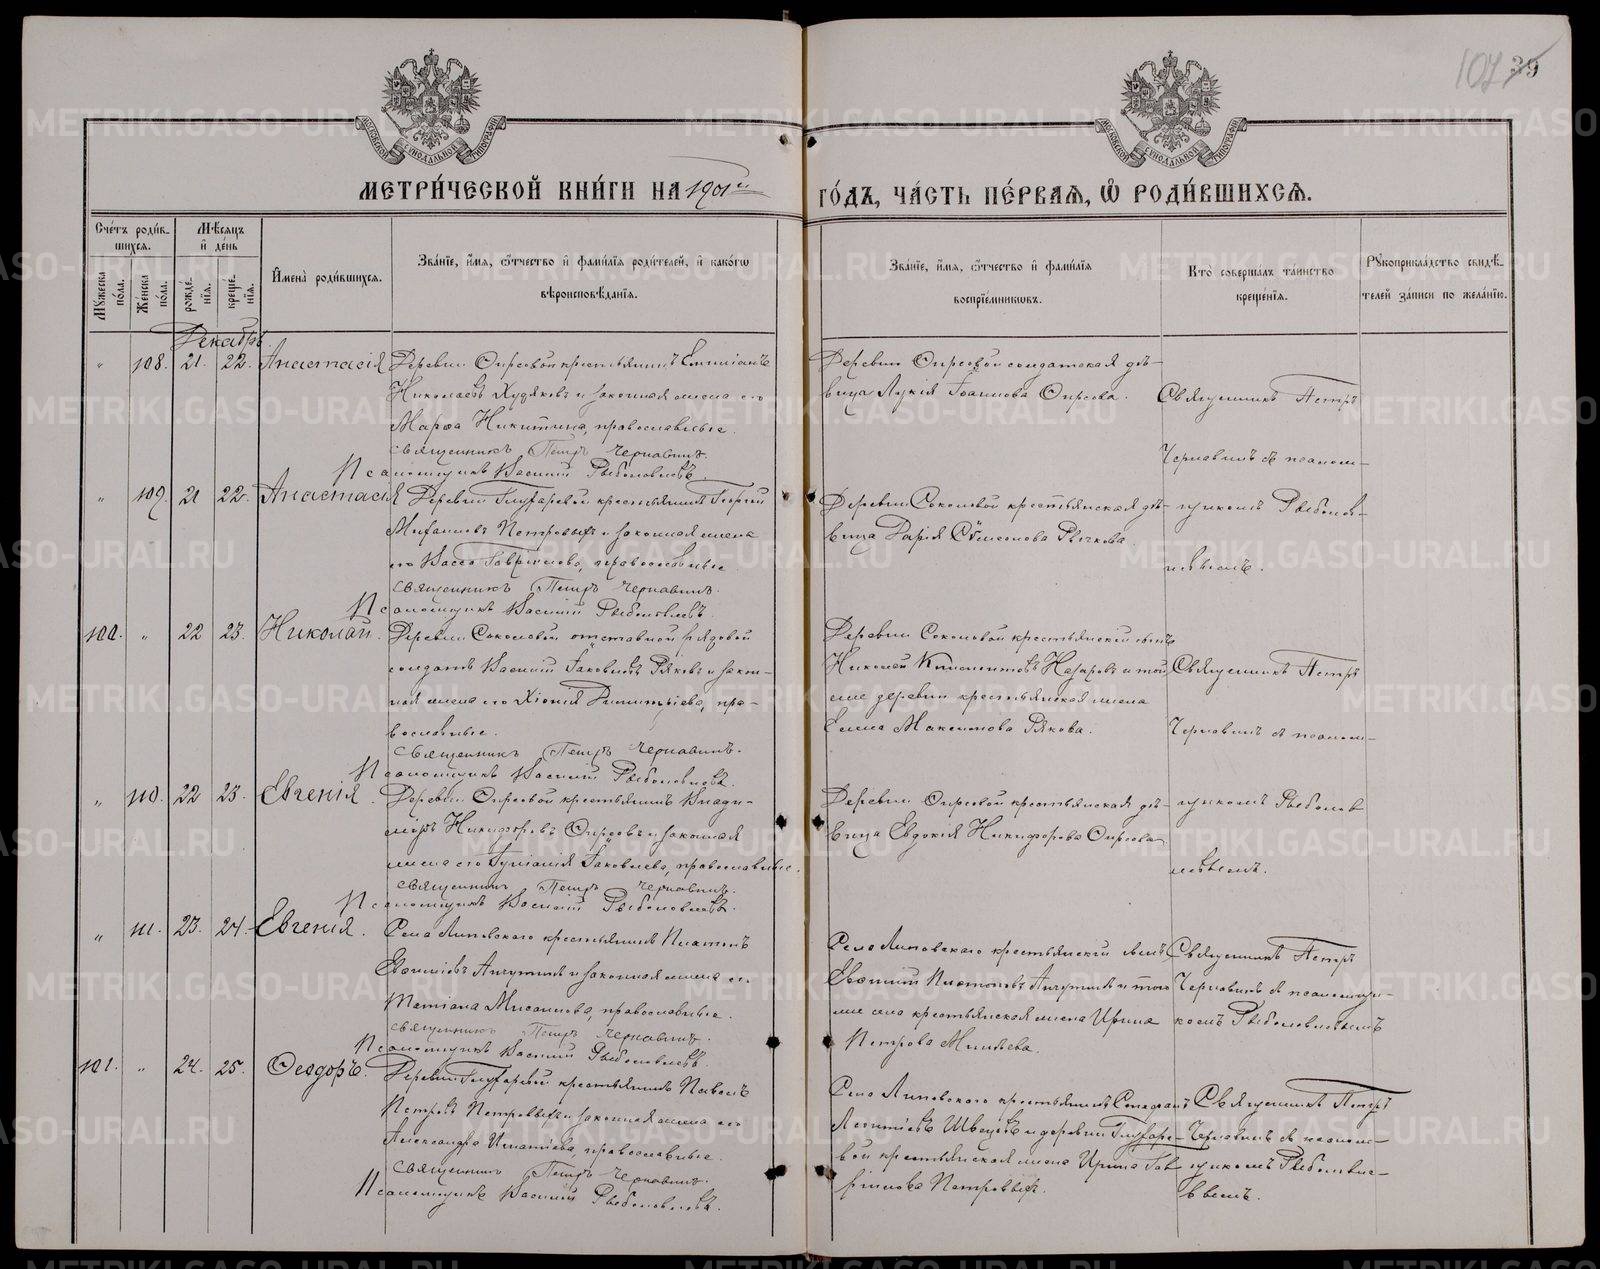 107 39
МЕТРИ́ЧЕСКОЙ КНИ́ГИ НА 1901й ГО́ДЪ, ЧА́СТЬ ПЕ́РВАѦ, Ѡ҆ РОДИ́ВШИХСѦ.
Сче́тъ роди́вшихсѧ.
Мѣ́сѧцъ и҆ де́нь
И҆мена̀ роди́вшихсѧ.
Зва́нїе, и҆́мѧ, ѻ҆́тчество и҆ фами́лїѧ роди́телей, и҆ како́гѡ вѣроисповѣ́данїѧ.
Зва́нїе, и҆́мѧ, ѻ҆́тчество и҆ фами́лїѧ воспрїе́мникѡвъ.
Кто̀ соверша́лъ та́инство креще́нїѧ.
Рꙋкоприкла́дство свидѣ́телей за́писи по жела́нїю.
Мꙋ́жеска по́ла. Же́нска по́ла. рожде́нїѧ. креще́нїѧ.
Декабрь.
" 108. 21. 22. Анастасія
Деревни Опрсовой крестьянинъ Емиліанъ
Николаевъ Худяковъ и законная жена его
Марѳа Никитина, православные.
Священникъ Петръ Чернавинъ.
Псаломщикъ Василій Рыболовлевъ.
Деревни солдатская дѣ-
вица Лукія Іоаннова
Священникъ Петръ
Чернавинъ съ псалом-
" 109. 21 22. Анастасія
Деревни Глухаревой крестьянинъ Георгій
Михаиловъ Петровыхъ и законная жена
его Васса Гавриилова, православные.
Священникъ Петръ Чернавинъ.
Псаломщикъ Василій Рыболовлевъ.
Деревни Соколовой крестьянская дѣ-
вица Дарія Сѵмеонова Рычкова.
щикомъ Рыболов-
левымъ.
100. " 22 23. Николай.
Деревни Соколовой отставной рядовой
солдатъ Василій Іаковлевъ Ряковъ и закон-
ная жена его Хіонія Димитріева, пра-
вославные.
Священникъ Петръ Чернавинъ.
Псаломщикъ Василій Рыболовлевъ.
Деревни Соколовой крестьянскій сынъ
Николай Климентовъ Назаровъ и той
же деревни крестьянская жена
Елена Максимова Рякова.
Священникъ Петръ
Чернавинъ съ псалом-
" 110. 22 23. Евгенія.
Деревни крестьянинъ Влади-
міръ Никифоровъ и законная
жена его Іуліанія Іаковлева, православные.
Священникъ Петръ Чернавинъ.
Псаломщикъ Василій Рыболовлевъ.
Деревни крестьянская дѣ-
вица Евдокія Никифорова
щикомъ Рыболов-
левымъ.
" 111. 23. 24. Евгенія.
Села Липовскаго крестьянинъ Платонъ
законная жена его
Татіана православные.
Священникъ Петръ Чернавинъ.
Псаломщикъ Василій Рыболовлевъ.
Села Липовскаго крестьянскій сынъ
Платоновъ и того
же села крестьянская жена Ирина
Петрова Минѣева.
Священникъ Петръ
Чернавинъ съ псаломщи-
комъ Рыболовлевымъ
101. " 24. 25. Ѳеодоръ.
Деревни Глухаревой крестьянинъ Павелъ
Петровъ Петровыхъ и законная жена его
Александра Игнатіева, православные.
Священникъ Петръ Чернавинъ.
Псаломщикъ Василій Рыболовлевъ.
Села Липовскаго крестьянинъ
Леонтіевъ Швецовъ и деревни Глухаре-
вой крестьянская жена Ирина Гав-
риилова Петровыхъ.
Священникъ Петръ
Чернавинъ съ псалом-
щикомъ Рыболовле-
вымъ.
METRIKI.GASO-URAL.RU